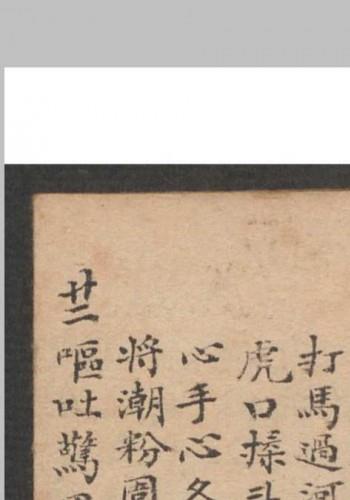 打馬過河
虎口揉斗
心手心各
將潮粉圍
廿二嘔吐驚